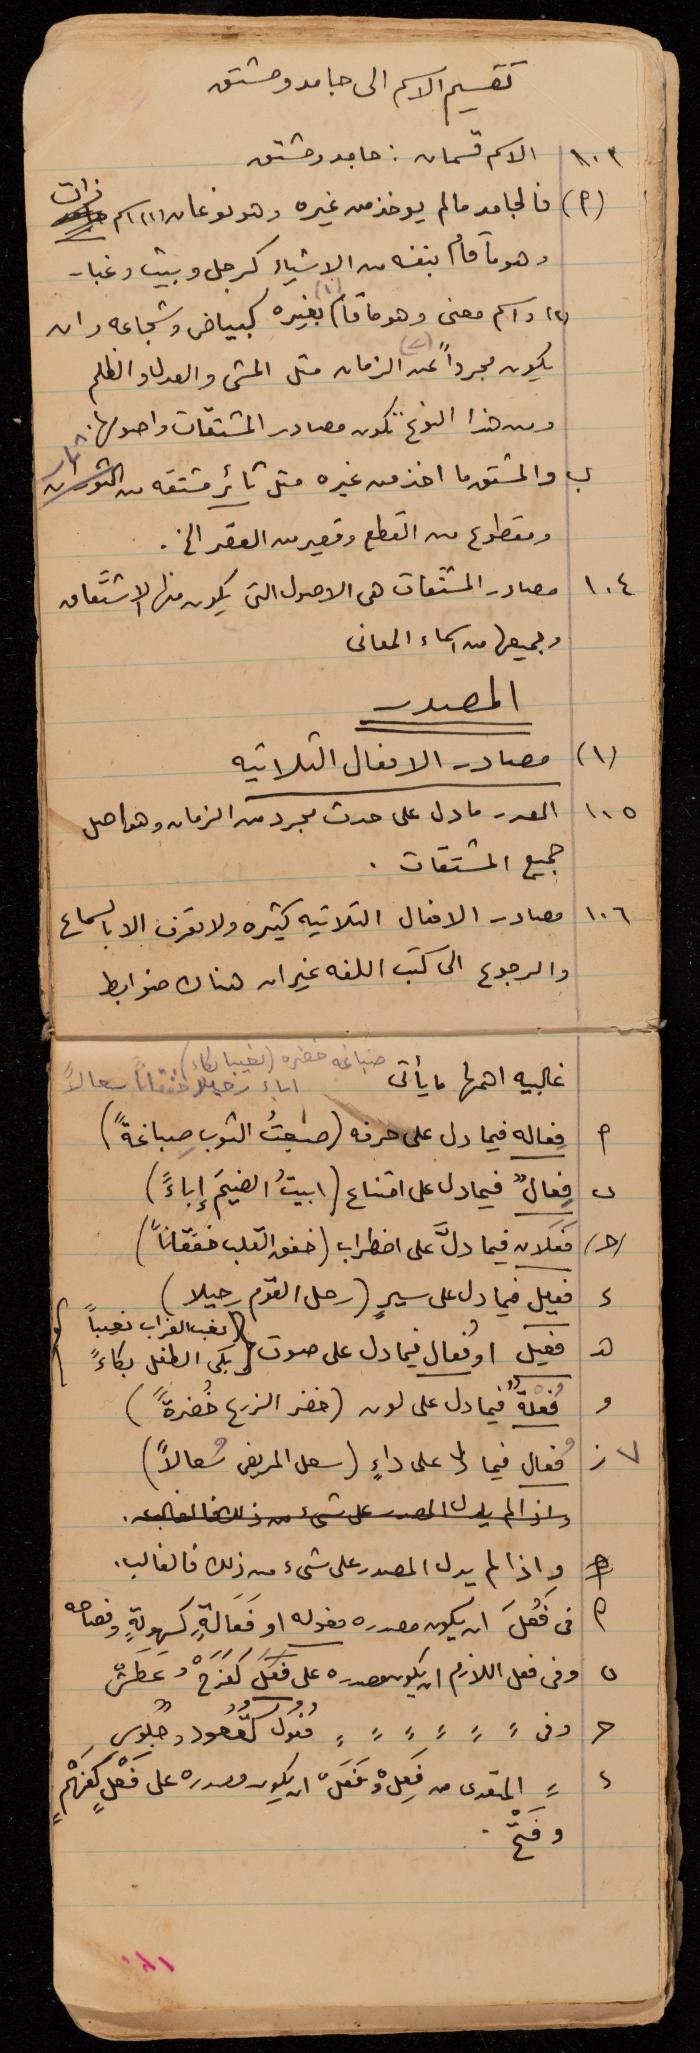 تقسيم الاسم الى جامد ومشتق
١٠٣ الاسم قسمان : جامد ومشتق
(٩) فالجامد مالم يوخذ من غيره وهو نوعان (١) اسم ذات
وهو ما قام بنفسه من الاشياء كرجل وبيت وغبار
(٢) واسم معنى وهو ما قام (١) بغيره كبياض وشجاعه وان
يكون مجرداً (٢) عن الزمان مثل المشى والعدل والظلم
ومن هذا النوع تكون مصادر المشتقات واصولها.
ب والمشتق ما اخذ من غيره مثل ثائر مشتقه من الثوران
ومقطوع من القطع وفقير من الفقر الخ.
١٠٤ مصادر المشتقات هى الاصول التى يكون منها الاشتقاق
وجميعها من اسماء المعانى
المصدر
(١) مصادر الافعال الثلاثيه
١٠٥ المصدر مادل على حدث مجرد من الزمان وهو اصل
جميع المشتقات .
١٠٦ مصادر الافعال الثلاثيه كثيره ولا تعرف الا بالسماع
والرجوع الى كتب اللغه غير ان هناك ضوابط
غالبيه اهمها مايأتى صباغه خضره (نعيبا بكاء)
اباء رحيلا خفقاناً سعالاً
٩ فِعاله فيما دل على حرفه (صبغتُ الثوب صباغةً)
ب فِعالٌ فيما دل على امتناع (ابيتُ الضيمَ إباءً)
(حـ) فَعَلَان فيما دلَّ على اضطراب (خفق القلب خفقاناً)
د فعيل فيما دل على سيرٍ (رحل القوم رحيلا)
هـ فعيل او فُعال فيما دل على صوت (نعب الغراب نعيباً
بكى الطفل بكاءً)
و فُعْلةٌ فيما دل على لون (خضر الزرع خُضرةً)
٧ ز فُعال فيما دل على داءٍ (سعل المريض سُعالاً)
واذا لم يدل المصدر على شىء من ذلك فالغالب.
واذا لم يدل المصدر على شىء من ذلك فالغالب.
٩ فى فَعُلَ ان يكون مصدره فعوله او فَعَالةٍ كسهولةٍ وفصاحه
ب وفى فعل اللازم ان يكون مصدره على فَعَلَ كفَرَحْ وعَطَشْ
حـ وفى 〃 〃 〃 〃 〃 فُعُولٌ كقُعُود وجُلوس
د 〃 المتعدى من فَعِلْ وفَعَلْ ان يكون مصدره على فَعْلٍ كفَهْمٍ
وفَتْحْ .
١٨١